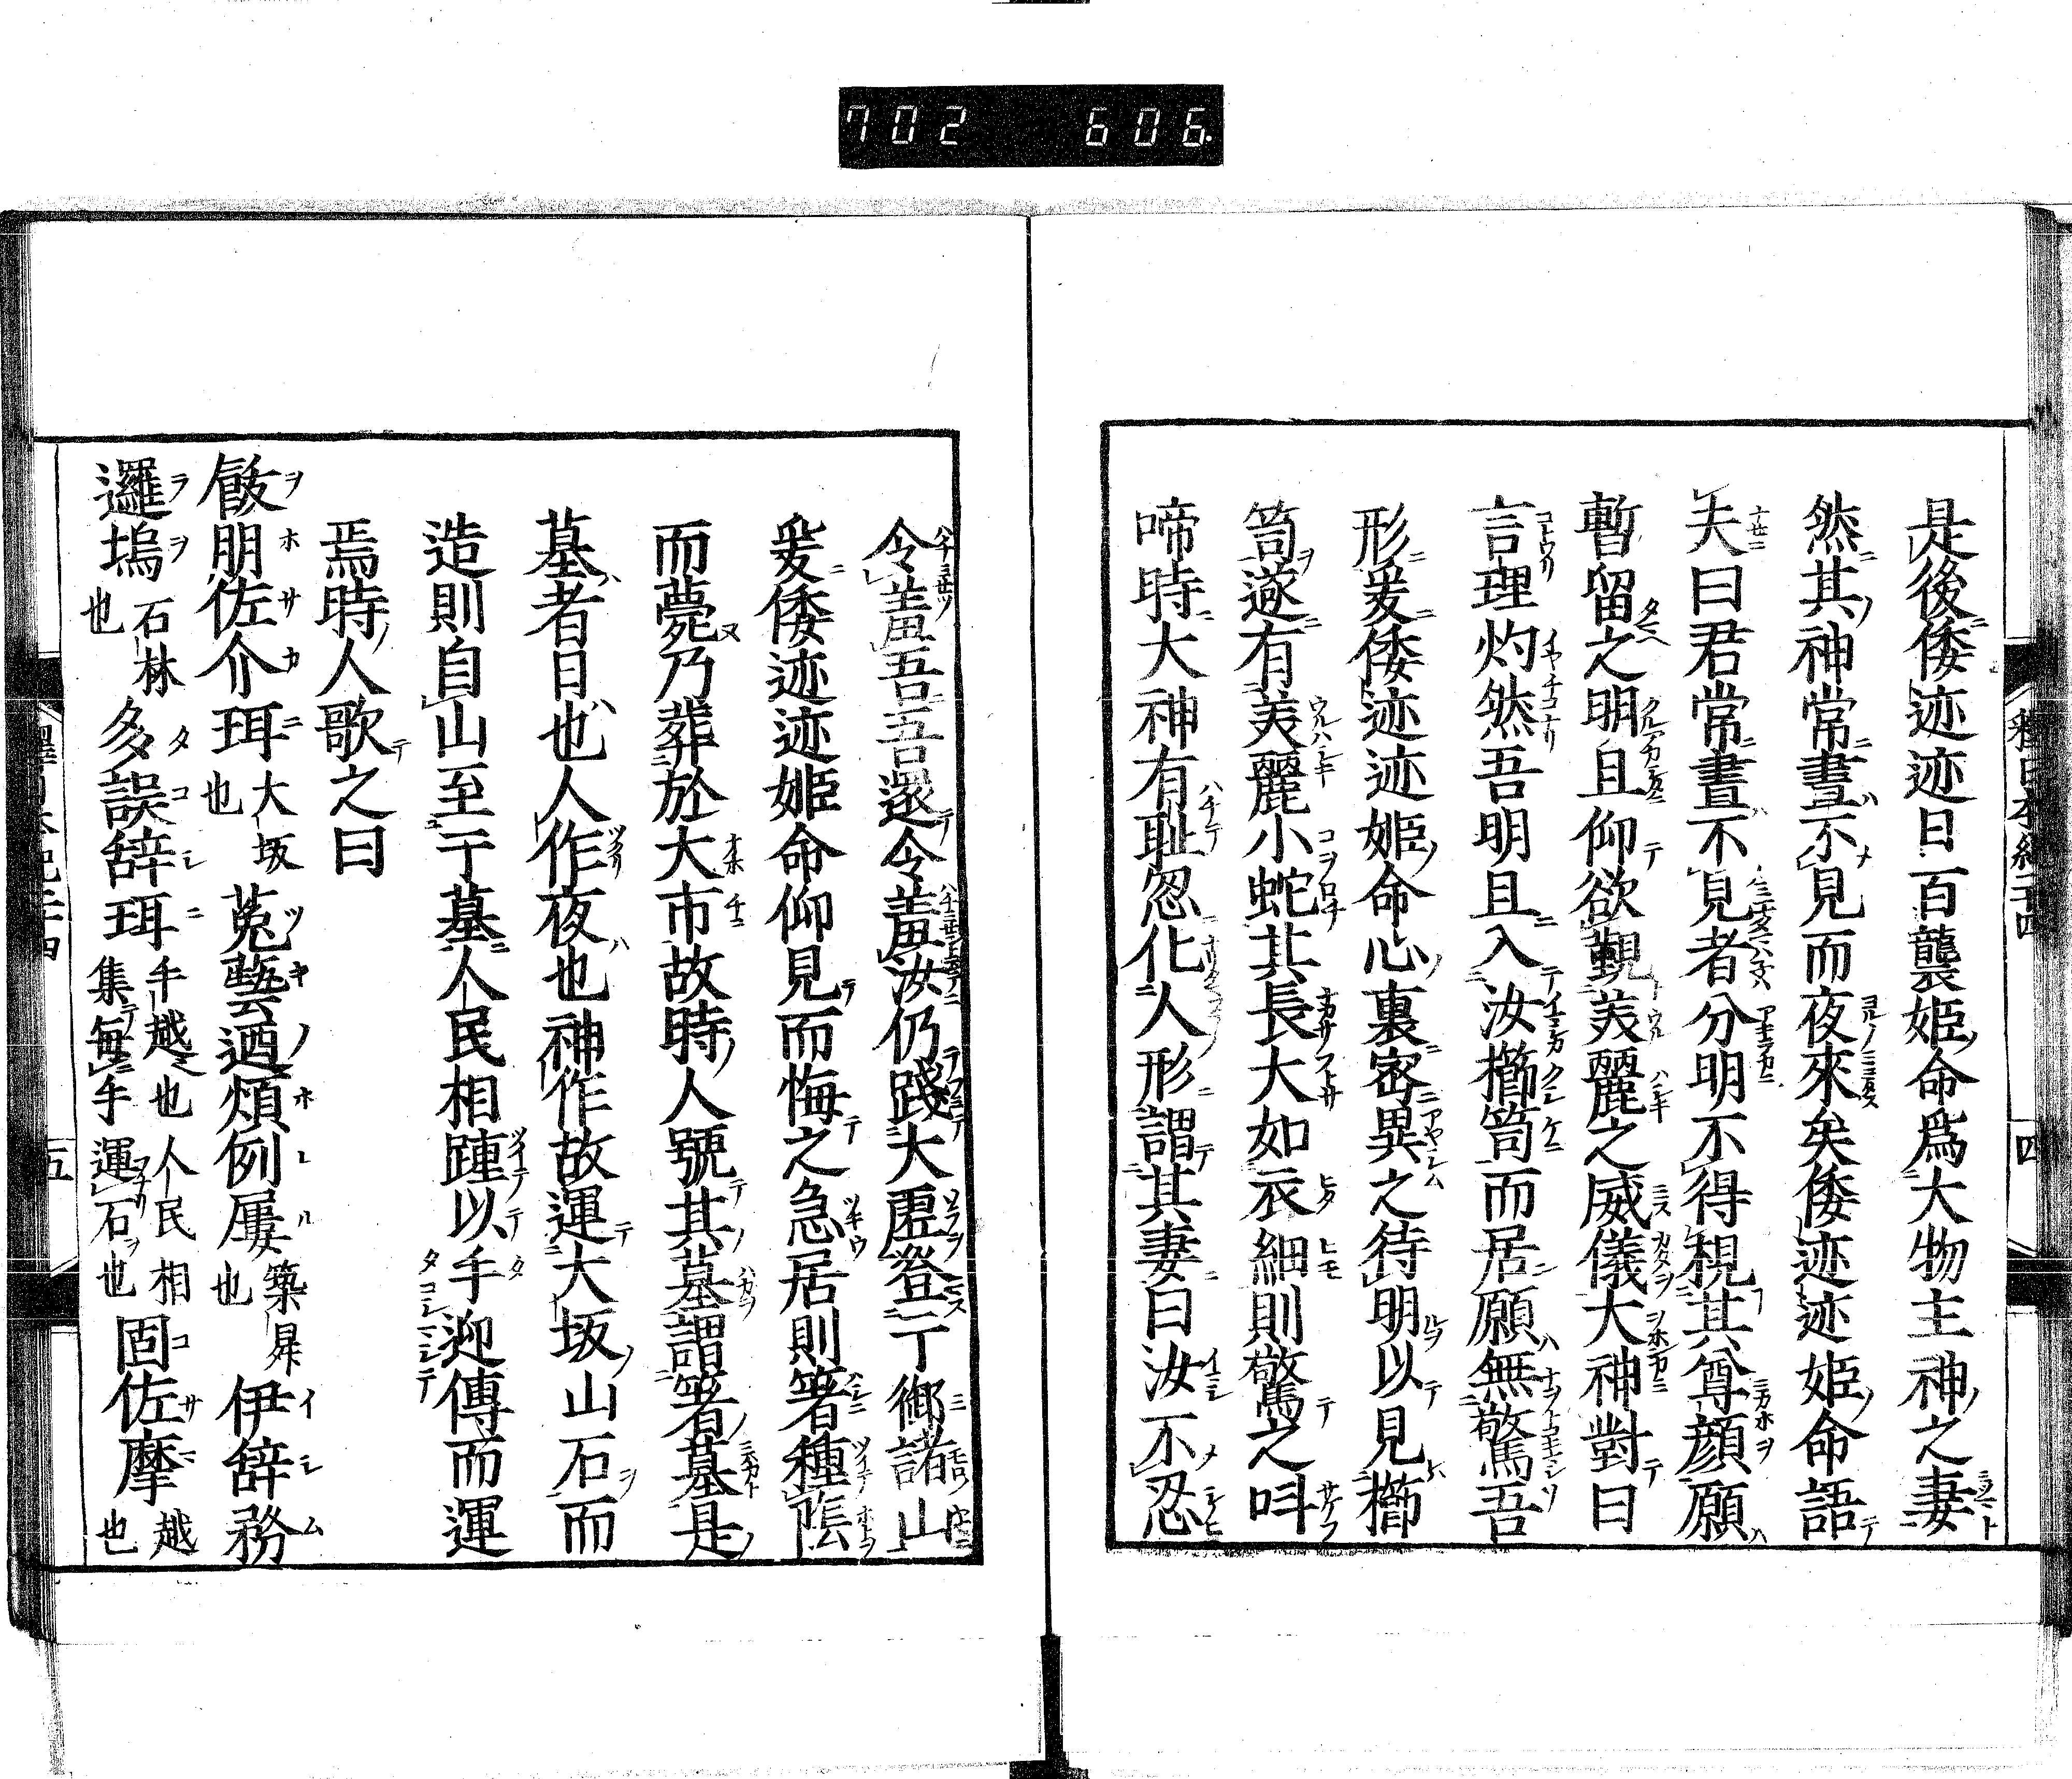 702 606.
是後倭迹迹日百襲姫命爲大物主神之妻
然其神常晝不見而夜來矣倭迹迹姫命語
夫曰君常晝不見者分明不得視其尊顔願
暫留之明旦仰欲覲美麗之威儀大神對曰
言理灼然吾明旦入汝櫛笥而居願無驚吾
形爰倭迹迹姫命心裏密異之待明以見櫛
笥遂有美麗小蛇其長大如衣細則驚之叫
啼時大神有耻忽化人形謂其妻曰汝不忍
令羞吾吾還令羞汝仍踐大虚登于御諸山
爰倭迹迹姫命仰見而悔之急居則箸種陰
而薨乃葬於大市故時人號其墓謂箸墓是
墓者日也人作夜也神作故運大坂山石而
造則自山至于墓人民相踵以手迎傳而運
焉時人歌之曰
飫朋佐介珥大坂也菟藝迺煩例屢築昇也伊辞務
邏塢石林也多誤辞珥手越也人民相集毎手運石也固佐摩越也